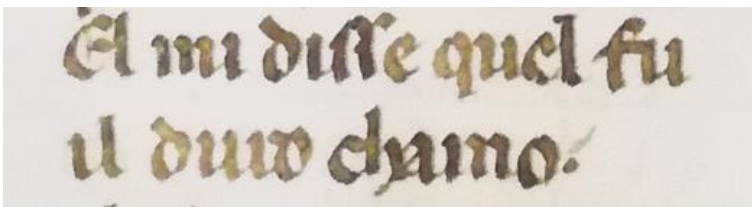 El mi disse quel fu
il duro chamo.